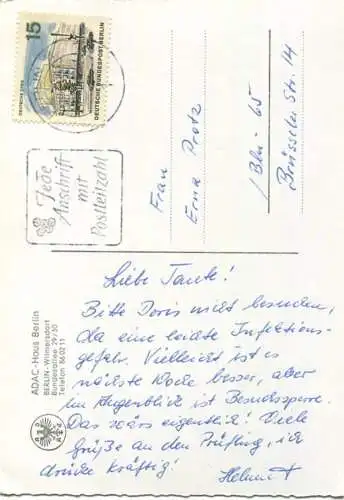 15
DEUTSCHE BUNDESPOST BERLIN
Jede
Anschrift
mit
Postleitzahl
Frau
Erna Protz
1 Bln 65
Brüsseler Str. 14
ADAC-Haus Berlin
BERLIN-Wilmersdorf
Bundesallee 29/30
Telefon 860211
Liebe Tante!
Bitte Doris nicht besuchen,
da eine leichte Infektions-
gefahr. Vielleicht ist es
nächste Woche besser, aber
im Augenblick ist Besuchssperre.
Das wärs eigentlich! Viele
Grüße an den Prüfling, ich
drücke kräftig!
Helmut